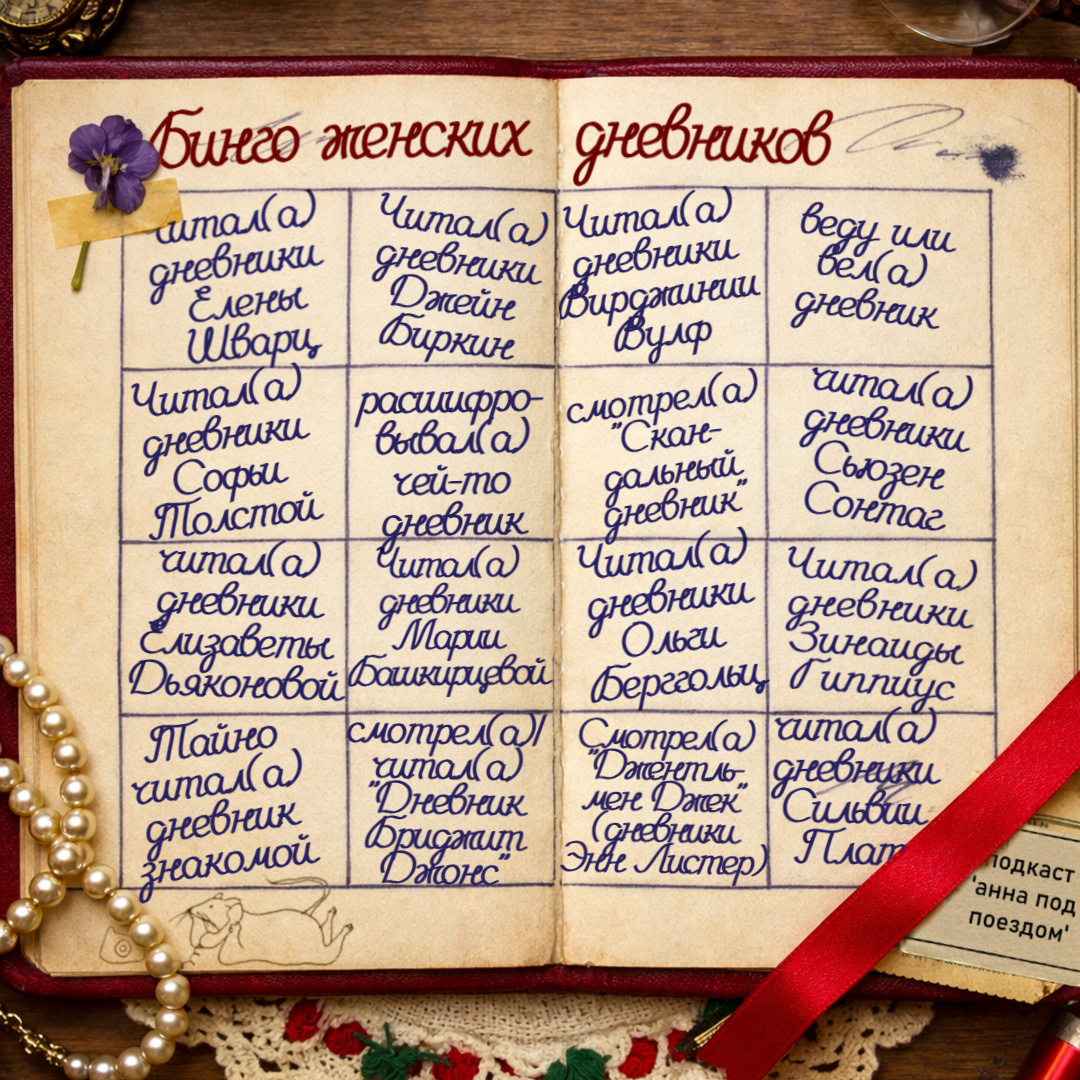 Бинго женских дневников
Читал(а)
дневники
Елены
Шварц
Читал(а)
дневники
Джейн
Биркин
Читал(а)
дневники
Вирджинии
Вулф
веду или
вел(а)
дневник
Читал(а)
дневники
Софьи
Толстой
расшифро-
вывал(а)
чей-то
дневник
смотрел(а)
"Скан-
дальный
дневник"
читал(а)
дневники
Сьюзен
Сонтаг
читал(а)
дневники
Елизаветы
Дьяконовой
Читал(а)
дневники
Марии
Башкирцевой
Читал(а)
дневники
Ольги
Берггольц
Читал(а)
дневники
Зинаиды
Гиппиус
Тайно
читал(а)
дневник
знакомой
смотрел(а)/
читал(а)
"Дневник
Бриджит
Джонс"
Смотрел(а)
"Джентль-
мен Джек"
(дневники
Энн Листер)
читал(а)
дневники
Сильвии
Плат
подкаст
'анна под
поездом'